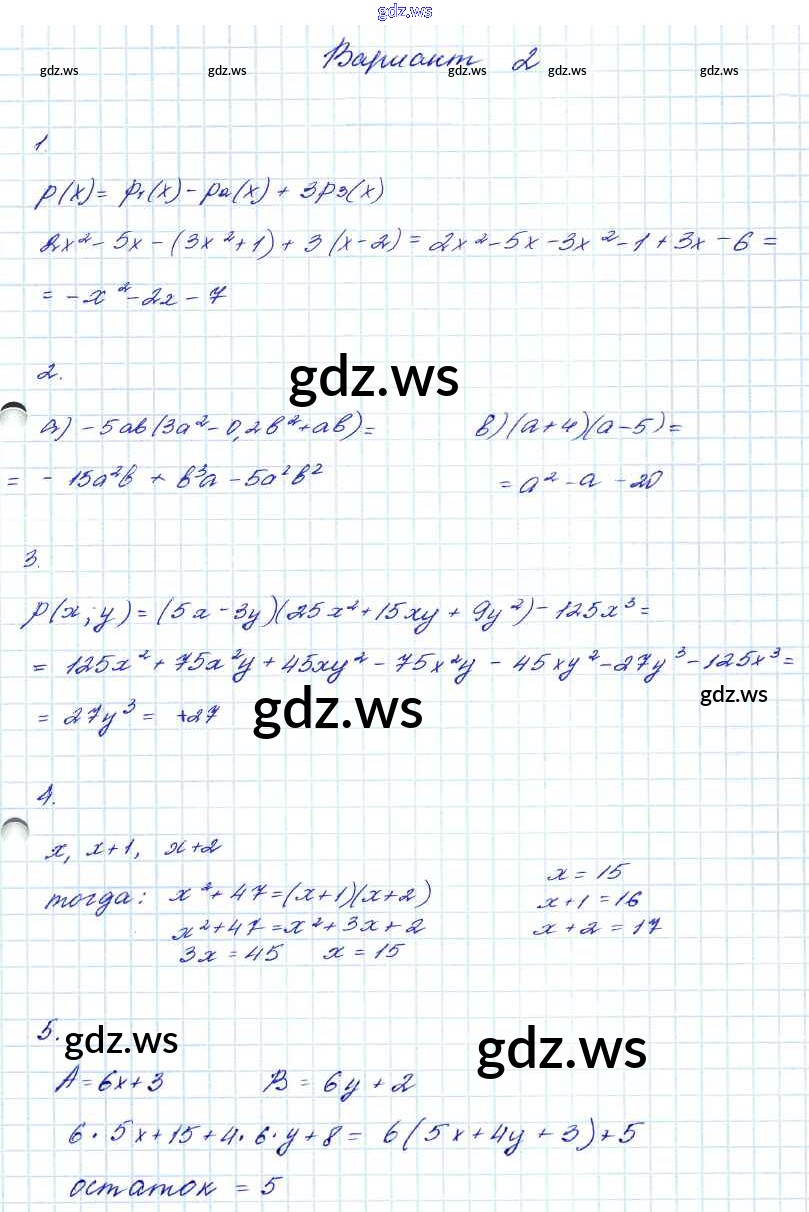 gdz.ws
Вариант 2
gdz.ws gdz.ws gdz.ws gdz.ws gdz.ws
1.
p(x) = p₁(x) - p₂(x) + 3p₃(x)
2x² - 5x - (3x² + 1) + 3(x - 2) = 2x² - 5x - 3x² - 1 + 3x - 6 =
= -x² - 2x - 7
2.
gdz.ws
а) -5ab(3a² - 0,2b² + ab) =
= - 15a²b + b³a - 5a²b²
в) (a+4)(a-5) =
= a² - a - 20
3.
p(x; y) = (5x - 3y)(25x² + 15xy + 9y²) - 125x³ =
= 125x² + 75x²y + 45xy² - 75x²y - 45xy² - 27y³ - 125x³ =
gdz.ws
= 27y³ = +27
gdz.ws
4.
x, x+1, x+2
тогда: x² + 47 = (x+1)(x+2)
x² + 47 = x² + 3x + 2
3x = 45 x = 15
x = 15
x+1 = 16
x+2 = 17
5.
gdz.ws
gdz.ws
A = 6x + 3 B = 6y + 2
6 · 5x + 15 + 4 · 6 · y + 8 = 6(5x + 4y + 3) + 5
остаток = 5